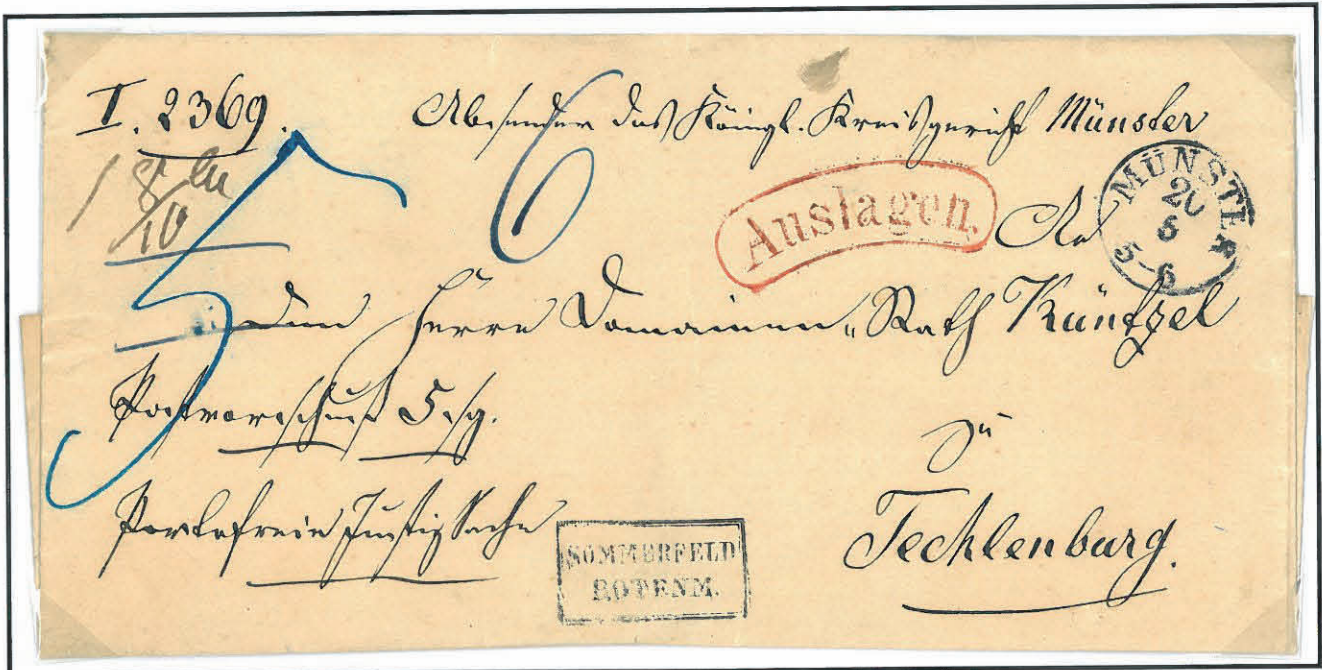 I. 2369.
Absender das Königl. Kreisgericht Münster
6
5
Auslagen.
MÜNSTE
20
5-6
An
den Herrn Domainen-Rath Küntzel
Postvorschuß 5 sg.
zu
Portofreie Justiz Sache
Tecklenburg.
SOMMERFELD
BOTENM.